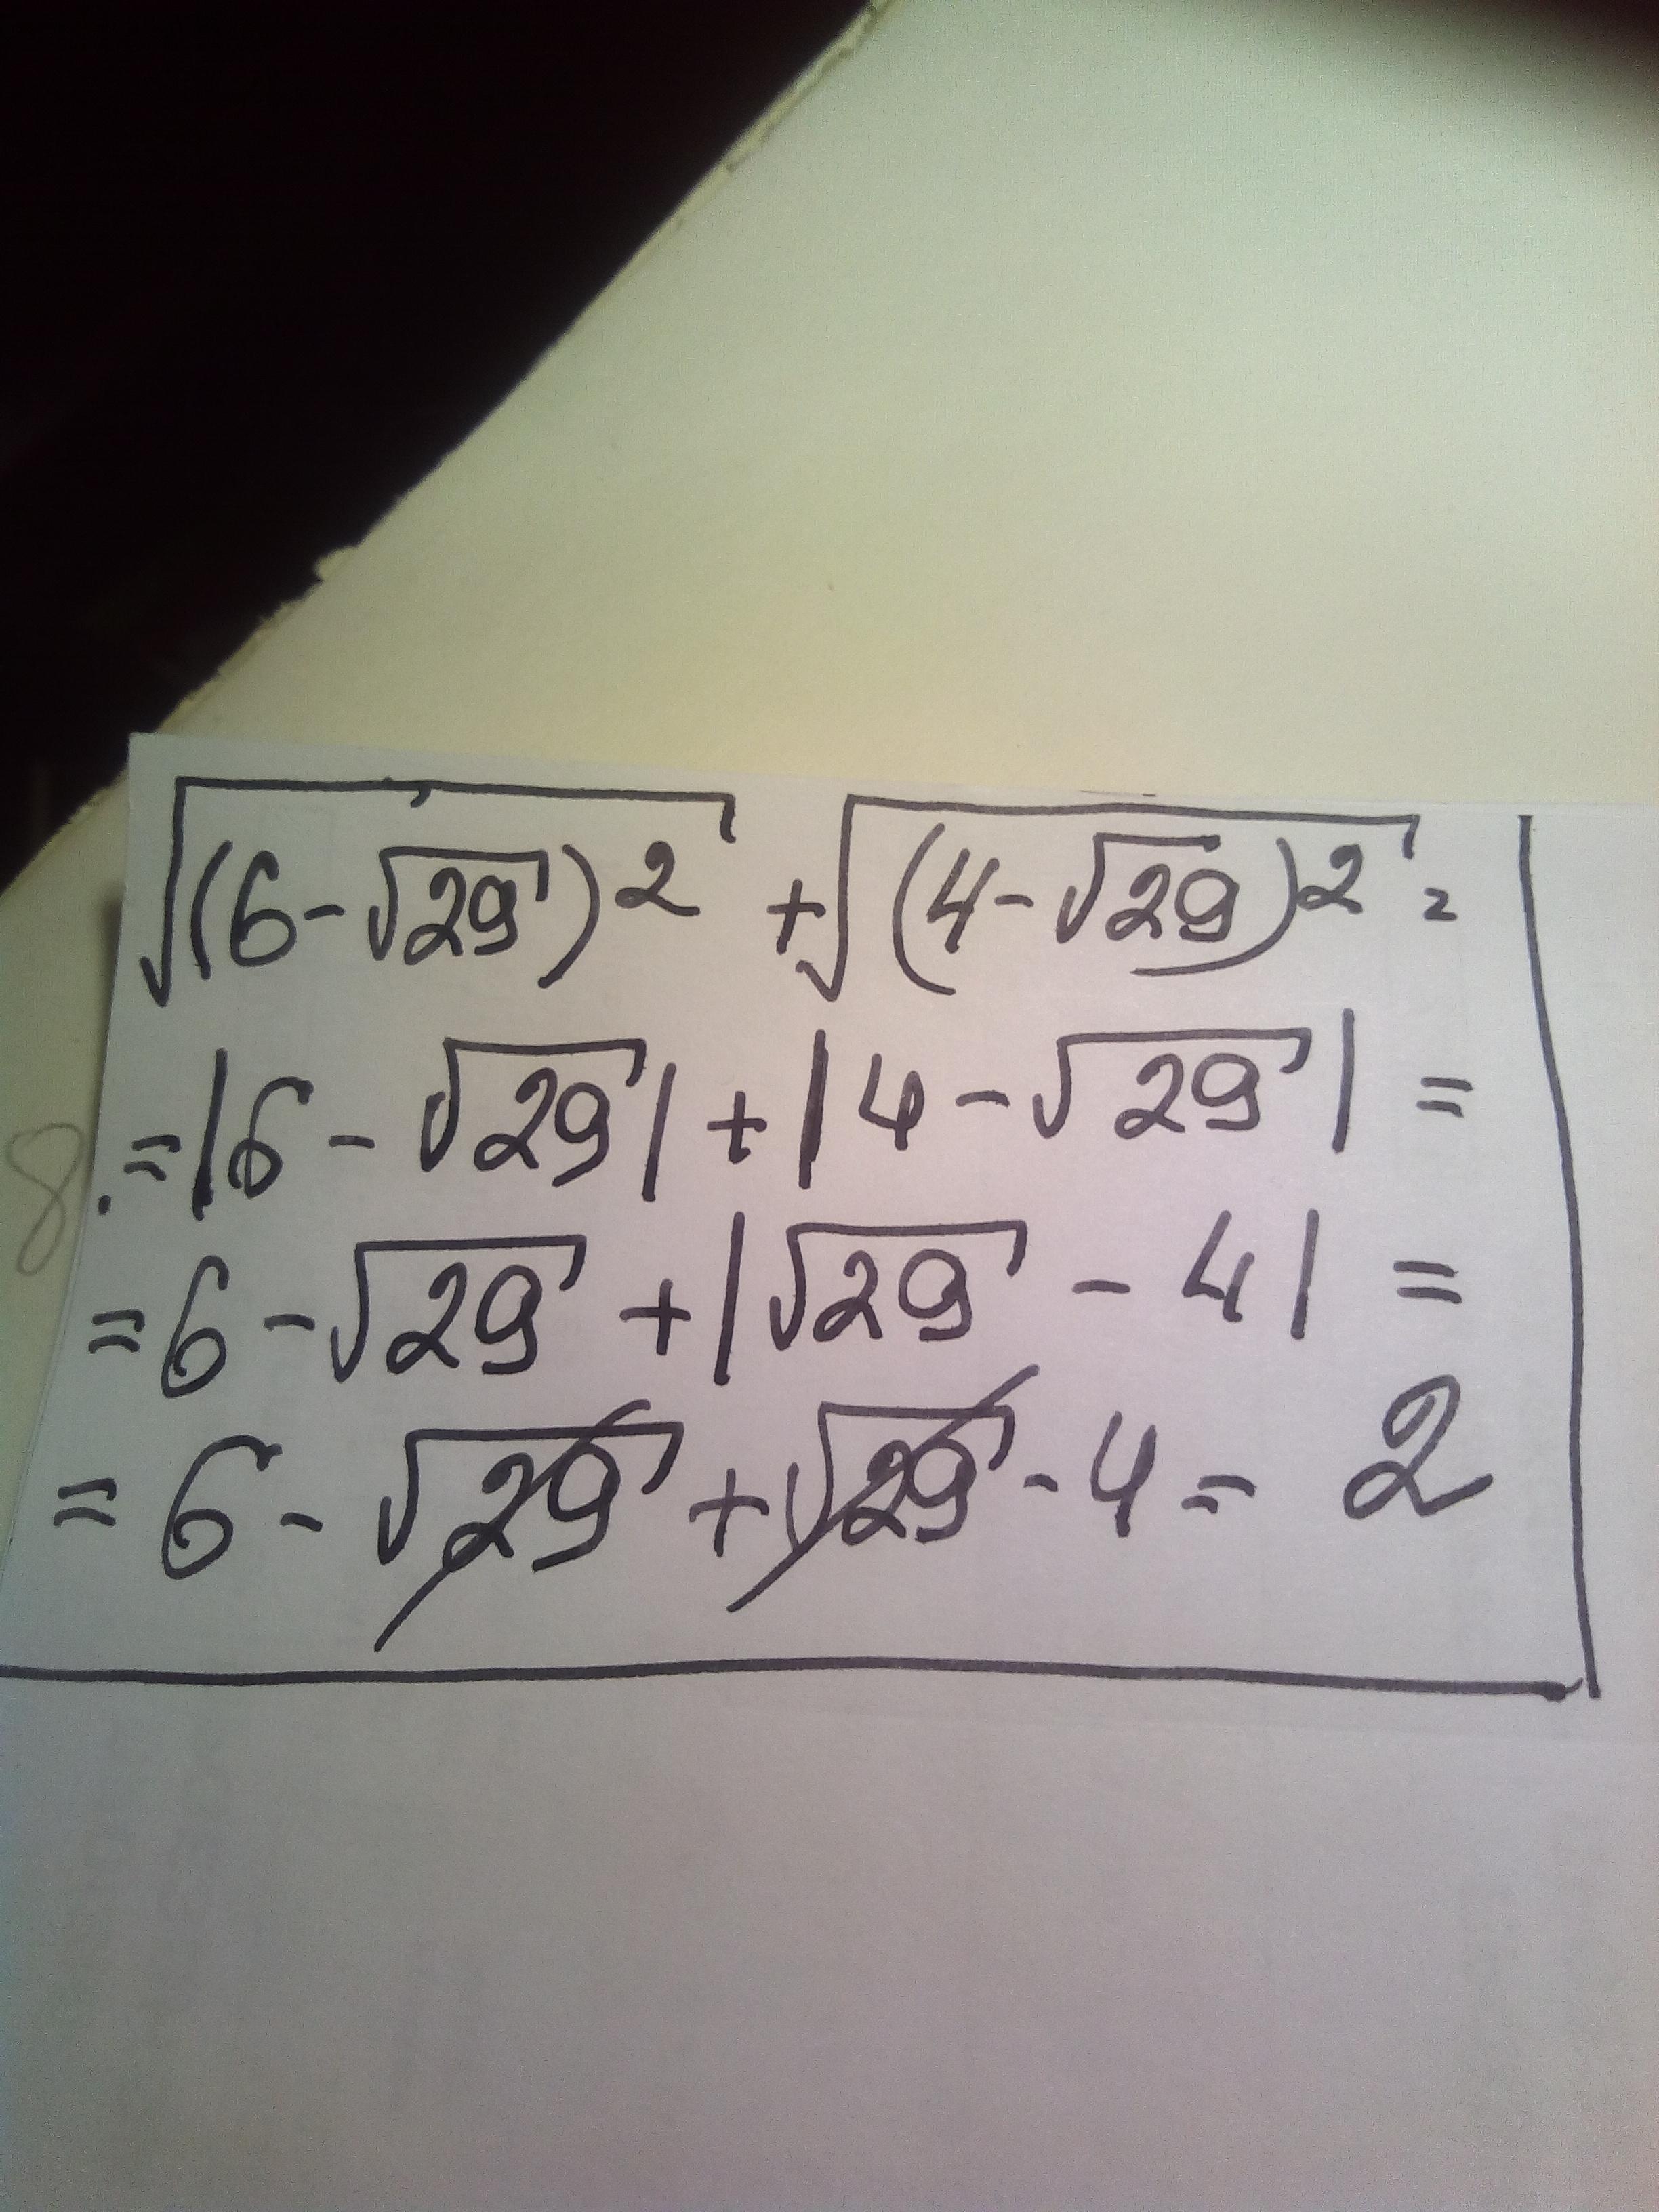 √(6-√29)² + √(4-√29)² =
= |6 - √29| + |4 - √29| =
8
= 6 - √29 + |√29 - 4| =
= 6 - √29 + √29 - 4 = 2